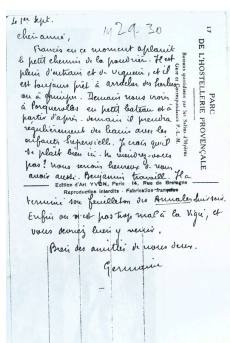 le 1er Sept.
M 29.30
cher ami,
Francis en ce moment aplanit
le petit chemin de la poudrière. Il est
plein d'entrain et de vigueur, et il
est toujours prêt à arracher des herbes
ou à grimper. Demain nous irons
à Porquerolles en petit bateau et à
partir d'après-demain il prendra
régulièrement des bains avec les
enfants Supervielle. Je crois qu'il
se plaît bien ici. Ne viendrez-vous
pas? Vous nous
avoir aussi. Benjamin travaille. Il a
Edition d'Art YVON, Paris 14, Rue de Bretagne
Reproduction interdite Fabrication française
terminé son feuilleton des Annales
Enfin on n'est pas trop mal à la Vigie, et
vous devriez bien y venir.
Bien des amitiés de nous deux.
Germaine
17
PARC
DE L'HOSTELLERIE PROVENÇALE
Bateaux quotidiens par les Salins d'Hyères
Gare et Correspondance P.-L.-M.